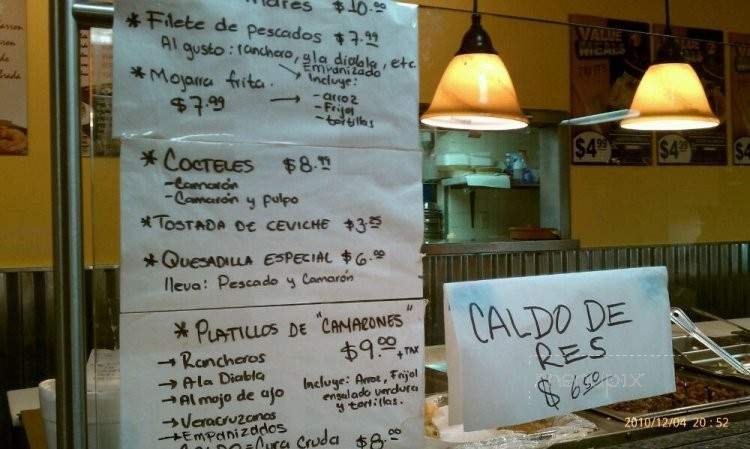 $10.00
* Filete de Pescados $7.99
Al gusto: ranchero, a la diabla, etc.
Empanizado
* Mojarra frita.
Incluye:
$7.99
- arroz
- Frijol
- tortillas
* COCTELES $8.99
- Camarón
- Camarón y pulpo
* TOSTADA DE CEVICHE $3.25
* QUESADILLA ESPECIAL $6.00
lleva: Pescado y Camarón
* PLATILLOS DE "CAMARONES"
$9.00 + TAX
→ Rancheros
→ A la Diabla
→ Al mojo de ajo
→ Veracruzanos
→ Empanizados
Incluye: Arroz, Frijol
ensalada verdura
y tortillas.
Cruda $8.00
CALDO DE
RES
$6.50
VALUE
MEALS
$4.99
$4.99
2010/12/04 20:52